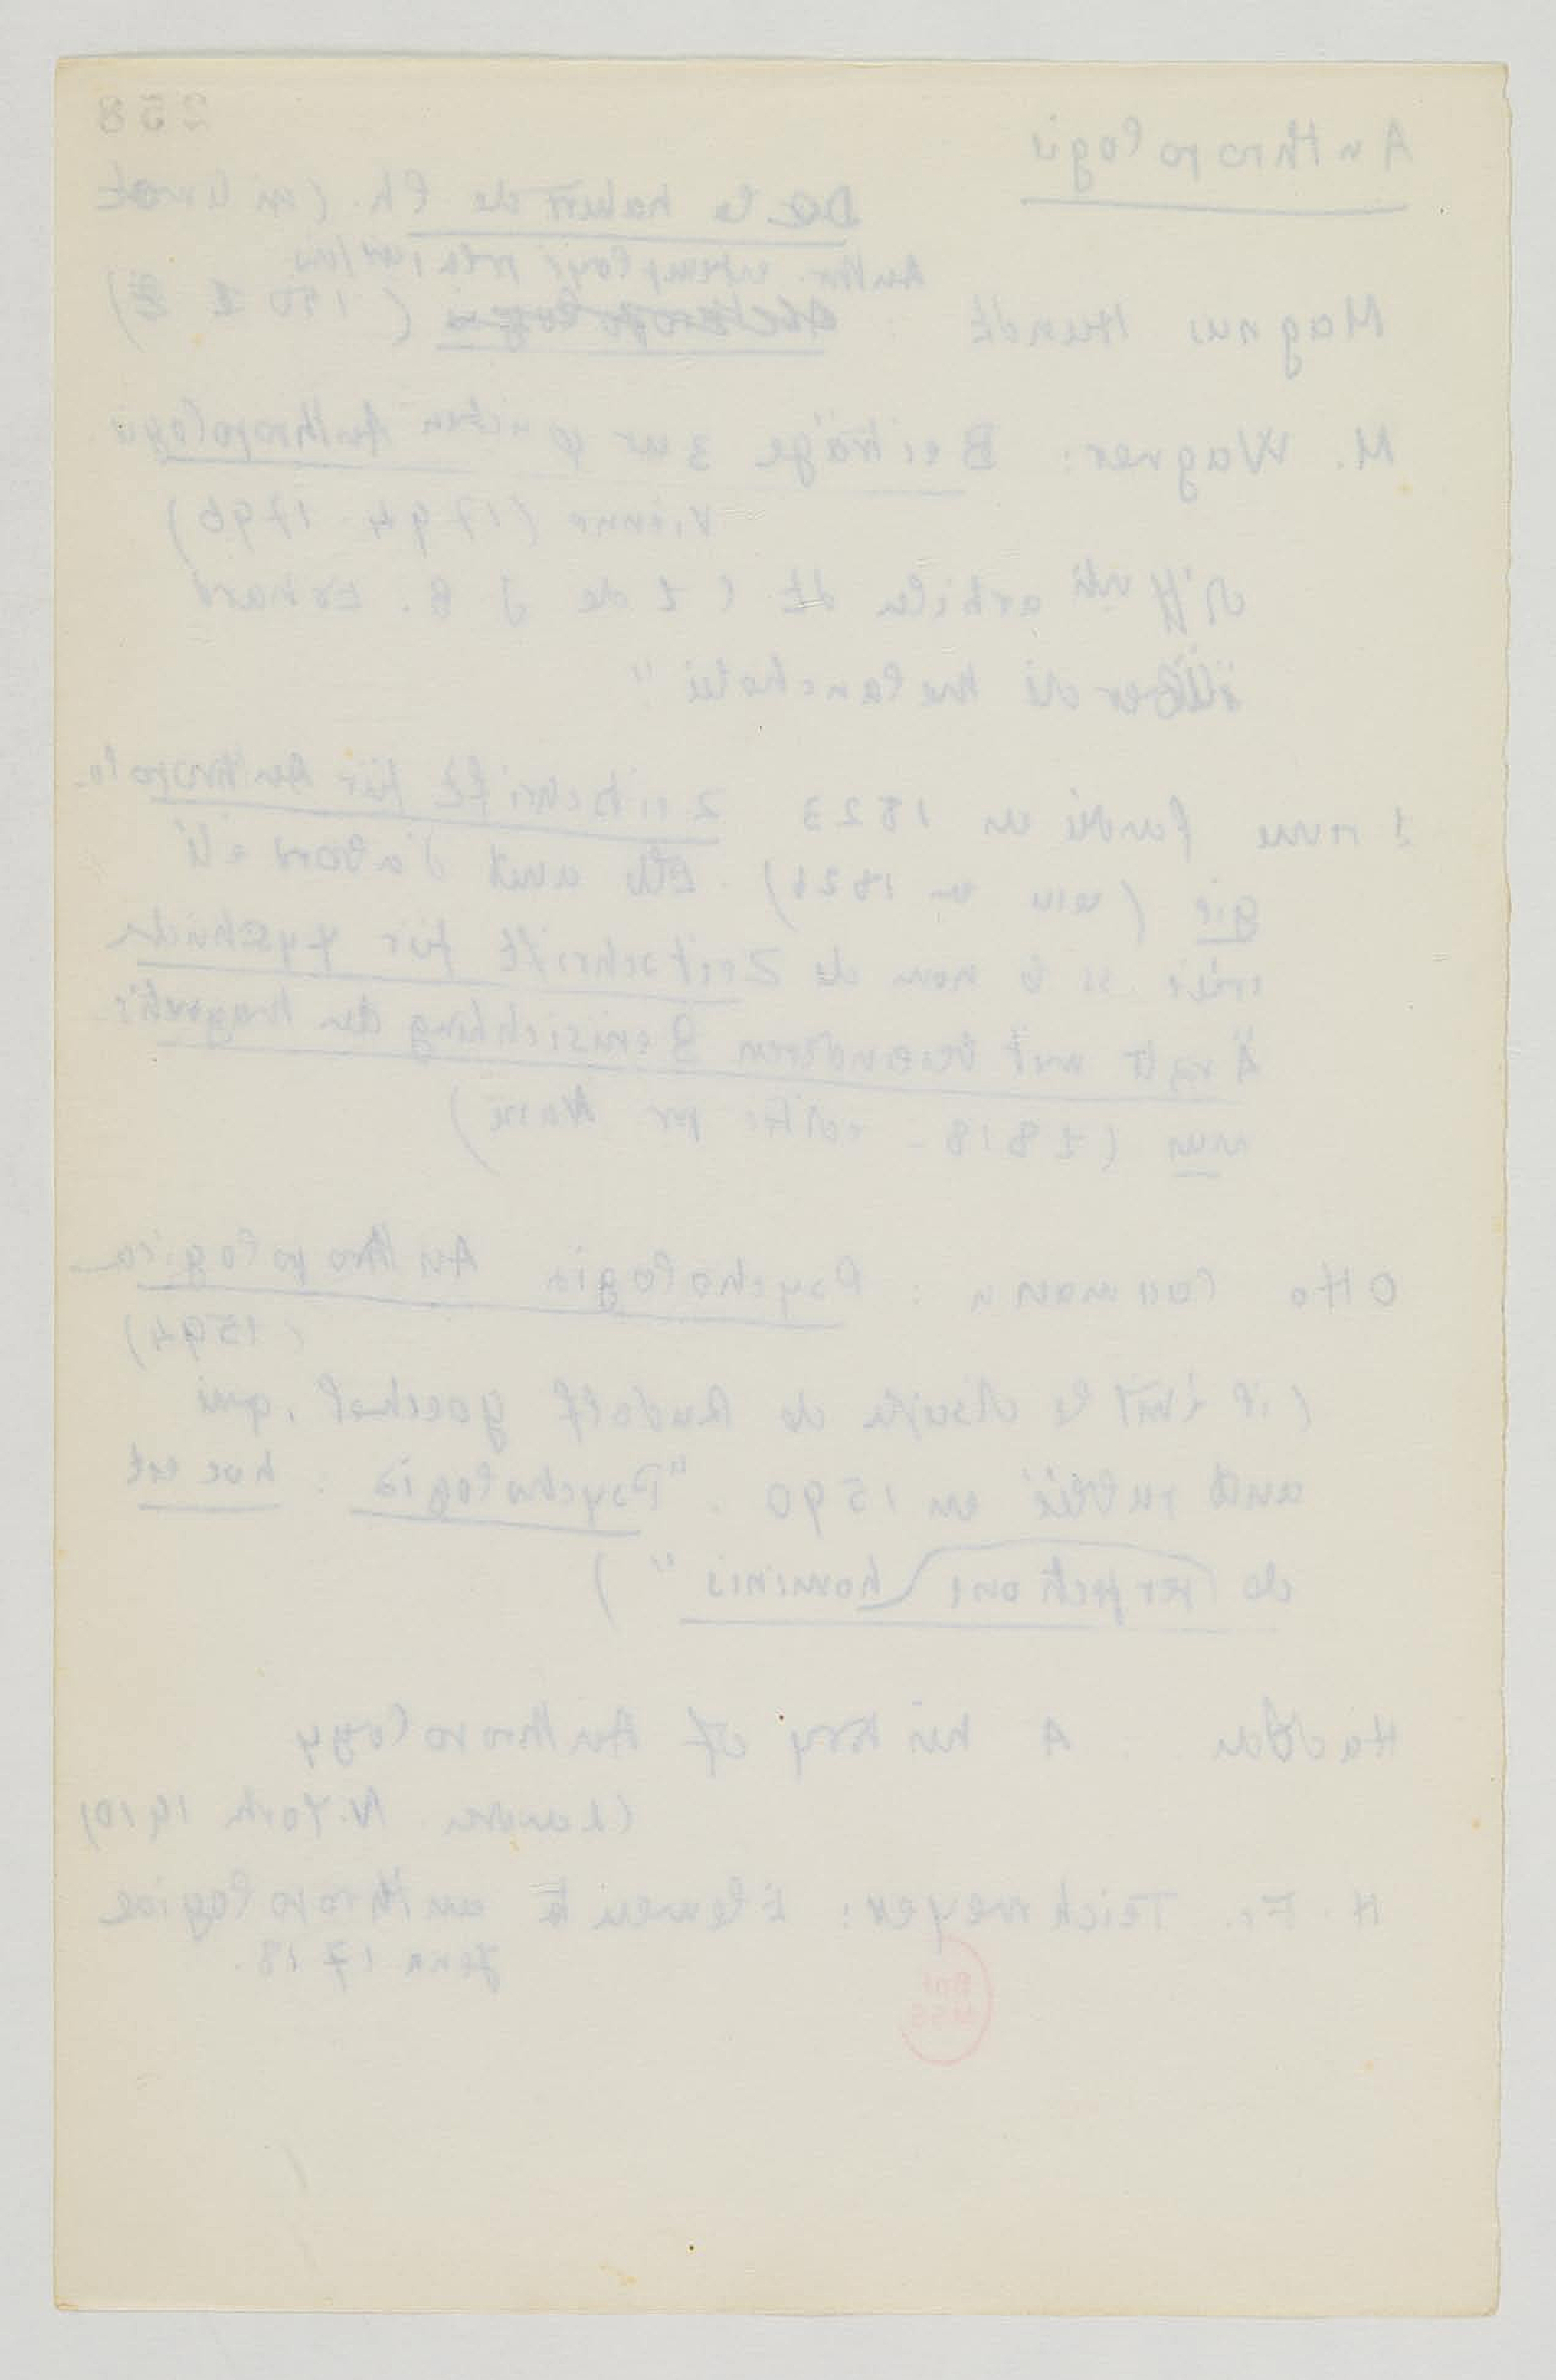 258
Anthropologie
De la nature de l'h. (intitulé
Anthr. employé
Magnus Hundt : Anthropologia (1501)
M. Wagner : Beiträge zur φischen Anthropologie
Vienne (1794-1796)
article de J B. Erhard
Über die Melancholie"
1 revue fondée en 1823 Zeitschrift für Anthropolo-
gie ( en 1826). Elle avait d'abord été
créée ss le nom de Zeitschrift für psychische
Ärzte mit besonderen Berücksichtung den Magnetis-
mus (1818 - éditée par Nasse)
Otto Casmann : Psychologia Anthropologica
(1594)
(il était le disciple de Rudolf Goeckel, qui
avait publié en 1590. "Psychologia : hoc est
de perfectione hominis")
Haddon A history of Anthropology
(Londres N. York 1910)
H. Fr. Teichmeyer : Elementa anthropologiae
Jena 1718.
BnF
MSS